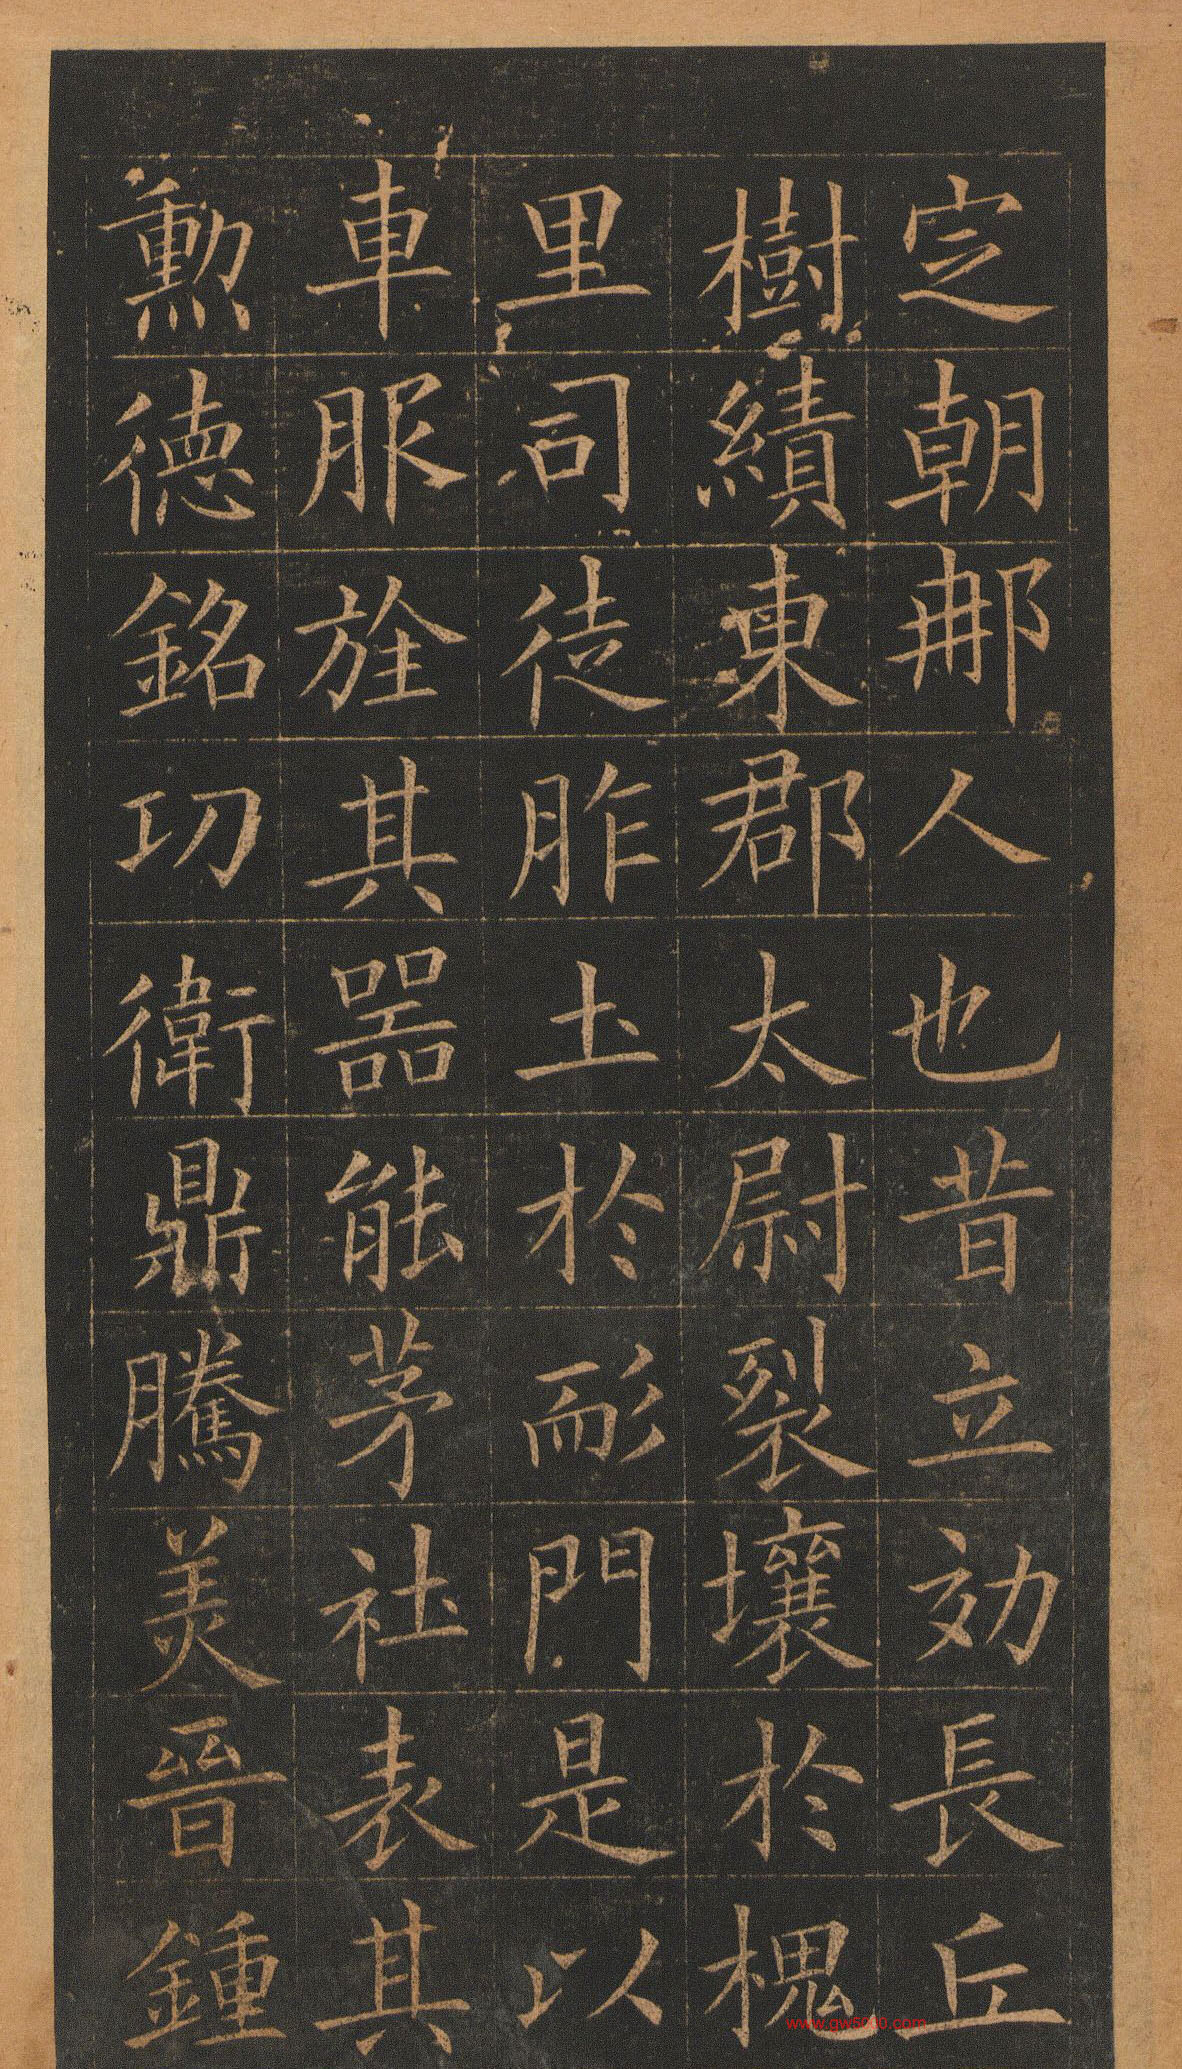 定朝𨙻人也昔立効長丘
樹績東郡太尉裂壤於槐
里司徒胙土於耏門是以
車服旌其器能茅社表其
勲德銘功衛鼎騰美晉鍾
www.gw5000.com